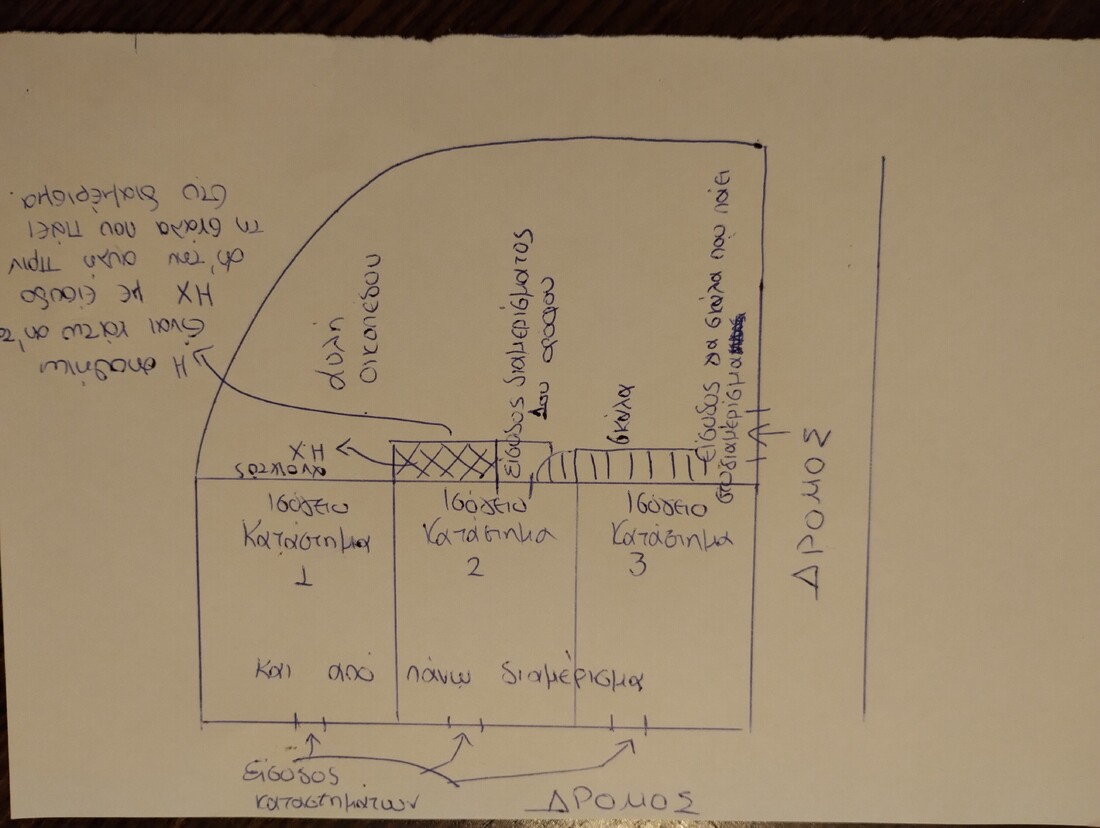 Η αποθήκη
είναι κάτω απ'το
ΗΧ με είσοδο
απ'την αυλή πριν
τη σκάλα που πάει
στο διαμέρισμα.
αυλή
οικοπέδου
είσοδος διαμερίσματος
1ου ορόφου
σκάλα
είσοδος για σκάλα που πάει
στο διαμέρισμα
ανοικτός
ΗΧ
Ισόγειο
Κατάστημα
1
Ισόγειο
Κατάστημα
2
Ισόγειο
Κατάστημα
3
και από πάνω διαμέρισμα
είσοδος
καταστημάτων
ΔΡΟΜΟΣ
ΔΡΟΜΟΣ